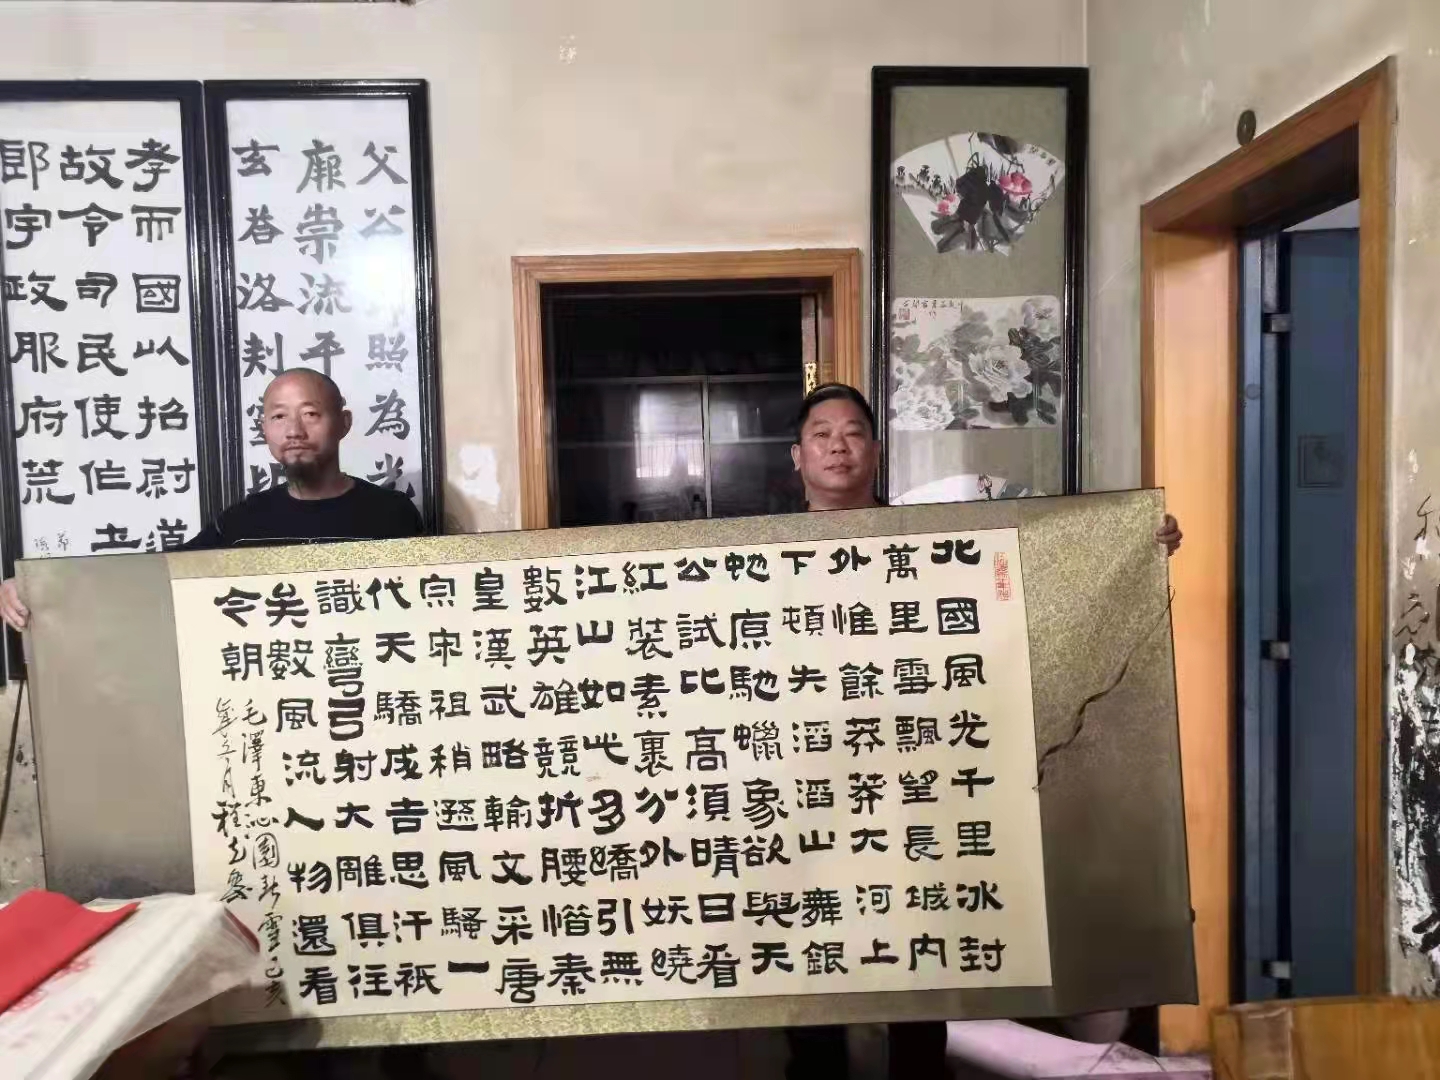 北國風光千里冰封
萬里雪飄望長城内
外惟餘莽莽大河上
下頓失滔滔山舞銀
虵原馳蠟象欲與天
公試比高須晴日看
紅裝素裹分外妖嬈
江山如此多嬌引無
數英雄競折腰惜秦
皇漢武略輸文采唐
宗宋祖稍遜風騷一
代天驕成吉思汗衹
識彎弓射大雕俱往
矣數風流人物還看
今朝
毛澤東沁園春雪己亥
年五月
父公照為光
崇流平
玄洛
孝而國以招尉道
故令司民使作士
郎宇政服府荒